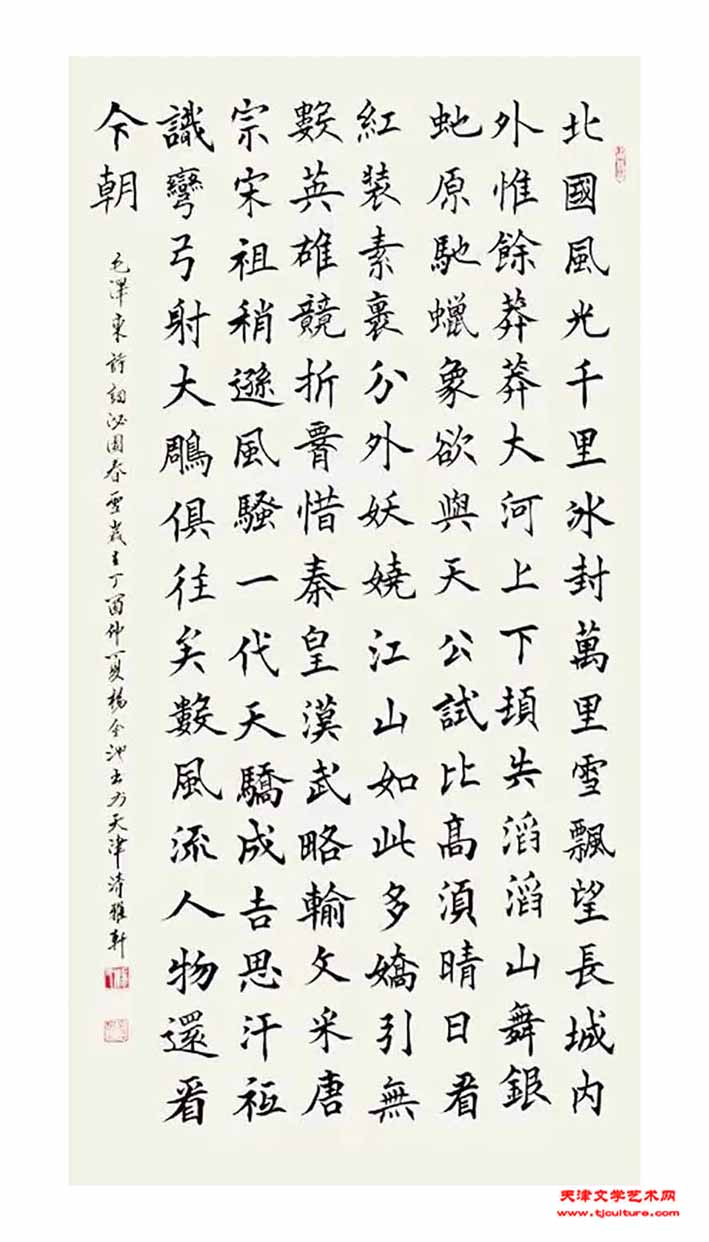 北國風光千里冰封萬里雪飄望長城內
外惟餘莽莽大河上下頓失滔滔山舞銀
虵原馳蠟象欲與天公試比高須晴日看
紅裝素裹分外妖嬈江山如此多嬌引無
數英雄競折腰惜秦皇漢武略輸文采唐
宗宋祖稍遜風騷一代天驕成吉思汗祗
識彎弓射大鵰俱往矣數風流人物還看
今朝
毛澤東詩詞沁園春雪歲在丁酉仲夏楊金池书於天津清雅軒
天津文学艺术网
www.tjculture.com